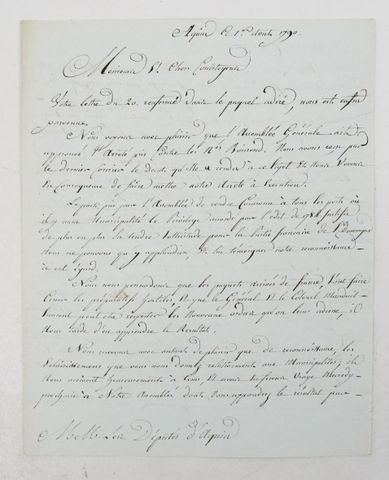 Aquin Ce 1er Aoust 1790.
Messieurs Et Chers Concitoyens
Votre lettre du 20. renfermée dans le paquet cadré, nous est enfin
parvenue.
Nous voyons avec plaisir que l'Assemblée Générale ait
approuvé l'Arrêté pris contre les Nous avons reçu par
le dernier courier le décret qu'elle a rendu à ce sujet Et Nous
En conséquence de faire mettre notre Arrêté à Exécution.
par l'Assemblée de rendre commune à tous les ports où
il y aura Municipalité le Privilège accordé par l'édit de 1784 justifie
de plus en plus la tendre sollicitude pour la Partie française de St Domingue
Nous ne pouvons qu'y applaudir, & lui témoigner notre reconnoissance
à cet égard.
Nous nous persuadons que les paquets arrivés de france Vont faire
Cesser les préparatifs hostiles, Et que le Général Et le Colonel Mauduit
respecter les Nouveaux ordres qu'on leur donne, il
Nous tarde d'en apprendre le Résultat.
Nous recevons avec autant de plaisir que de reconnoissance, les
Éclaircissemens que vous nous donnez relativement aux Municipalités; ils
Nous arrivent à tems, Et
prochain à Notre Assemblée dont Vous apprendrez le résultat par
MM. Les Députés d'Aquin